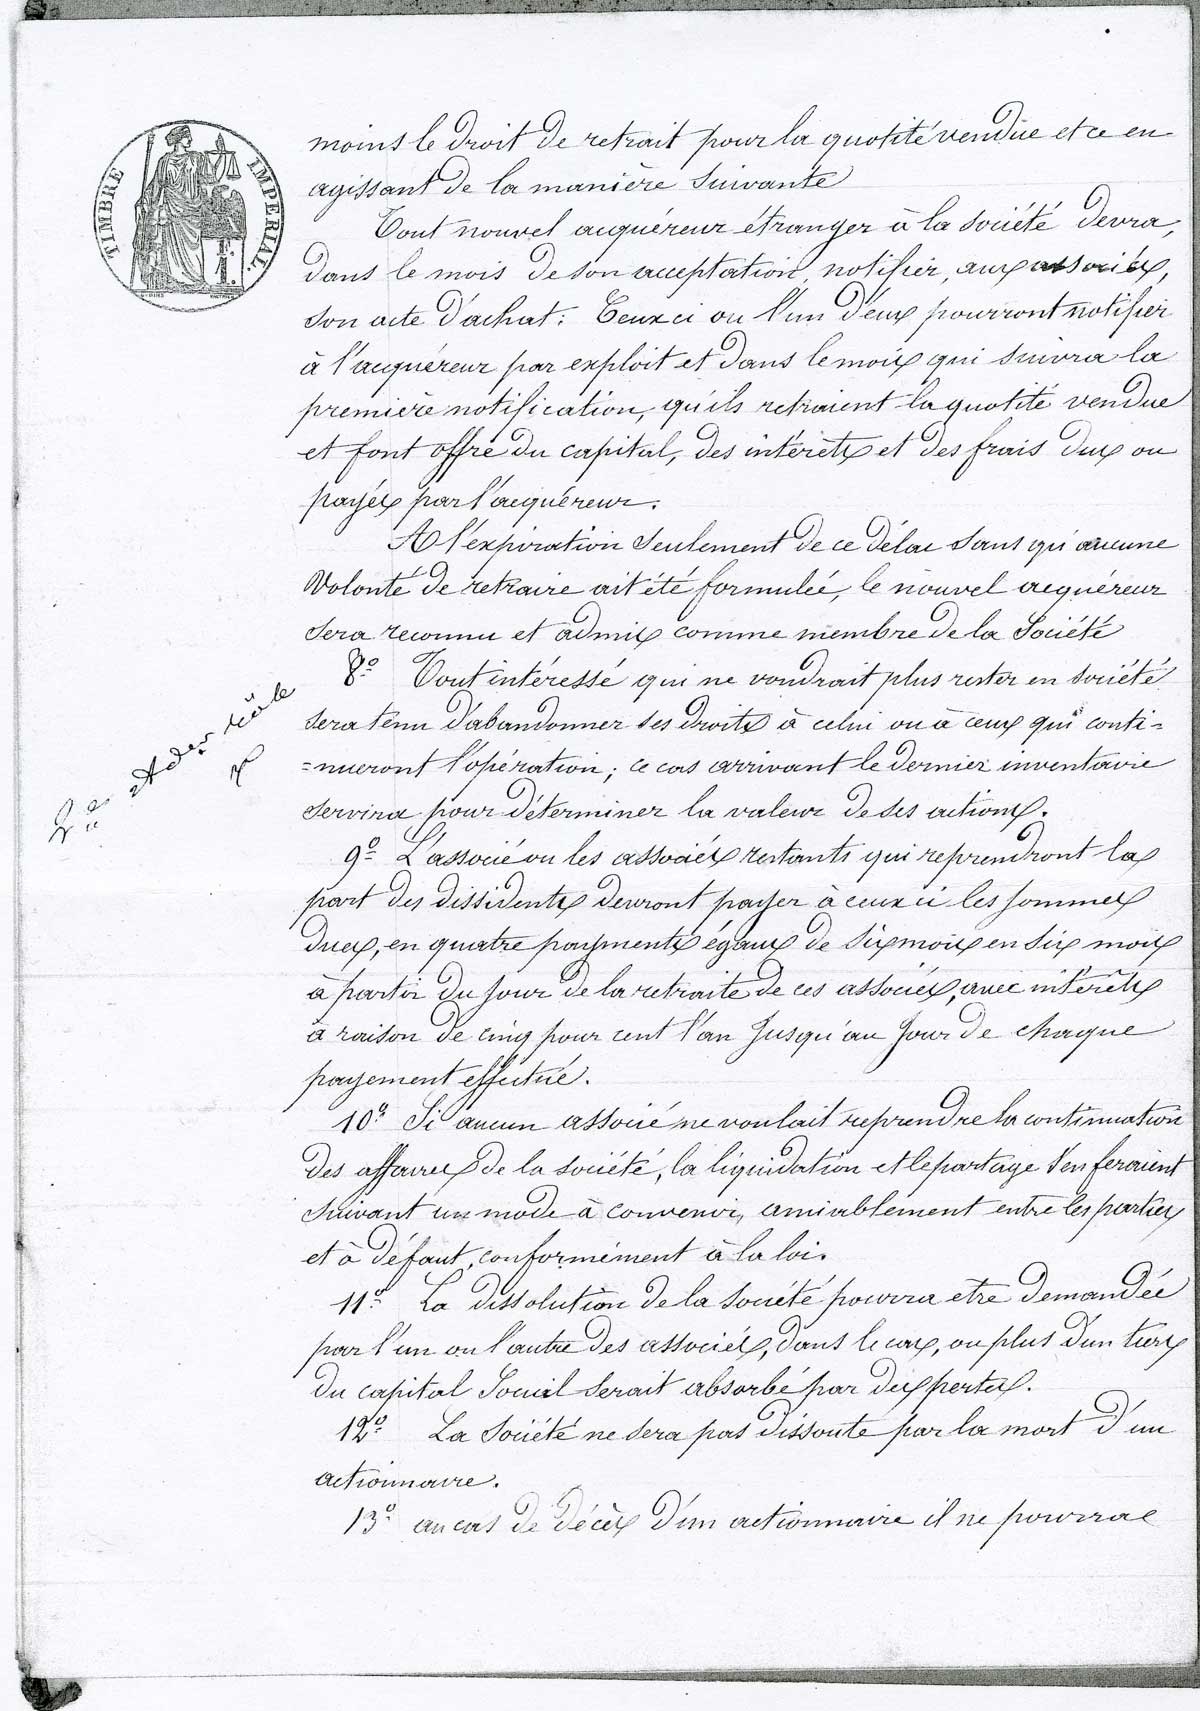 TIMBRE IMPERIAL.
moins le droit de retrait pour la quotité vendue et ce en
agissant de la manière suivante
Tout nouvel acquéreur étranger à la société devra,
dans le mois de son acceptation, notifier, aux associés,
son acte d'achat: Ceux ci ou l'un d'eux pourront notifier
à l'acquéreur par exploit et dans le mois qui suivra la
première notification, qu'ils retraient la quotité vendue
et font offre du capital, des intérêts et des frais dus ou
payés par l'acquéreur.
A l'expiration seulement de ce délai sans qu'aucune
Volonté de retraire ait été formulée, le nouvel acquéreur
sera reconnu et admis comme membre de la Société
8º Tout intéressé qui ne voudrait plus rester en société
sera tenu d'abandonner ses droits à celui ou à ceux qui conti=
=nueront l'opération; ce cas arrivant le dernier inventaire
servira pour déterminer la valeur de ses actions.
9º L'associé ou les associés restants qui reprendront la
part des dissidents devront payer à ceux ci les sommes
dues, en quatre payments égaux de six mois en six mois
à partir du jour de la retraite de ces associés, avec intérêts
à raison de cinq pour cent l'an jusqu'au jour de chaque
payement effectué.
10º Si aucun associé ne voulait reprendre la continuation
des affaires de la société, la liquidation et le partage s'en feraient
suivant un mode à convenir, amiablement entre les parties
et à défaut, conformément à la loi.
11º La dissolution de la société pourra etre demandée
par l'un ou l'autre des associés, dans le cas, ou plus d'un tiers
du capital Social serait absorbé par des pertes.
12º La Société ne sera pas dissoute par la mort d'un
actionnaire.
13º au cas de décès d'un actionnaire il ne pourra